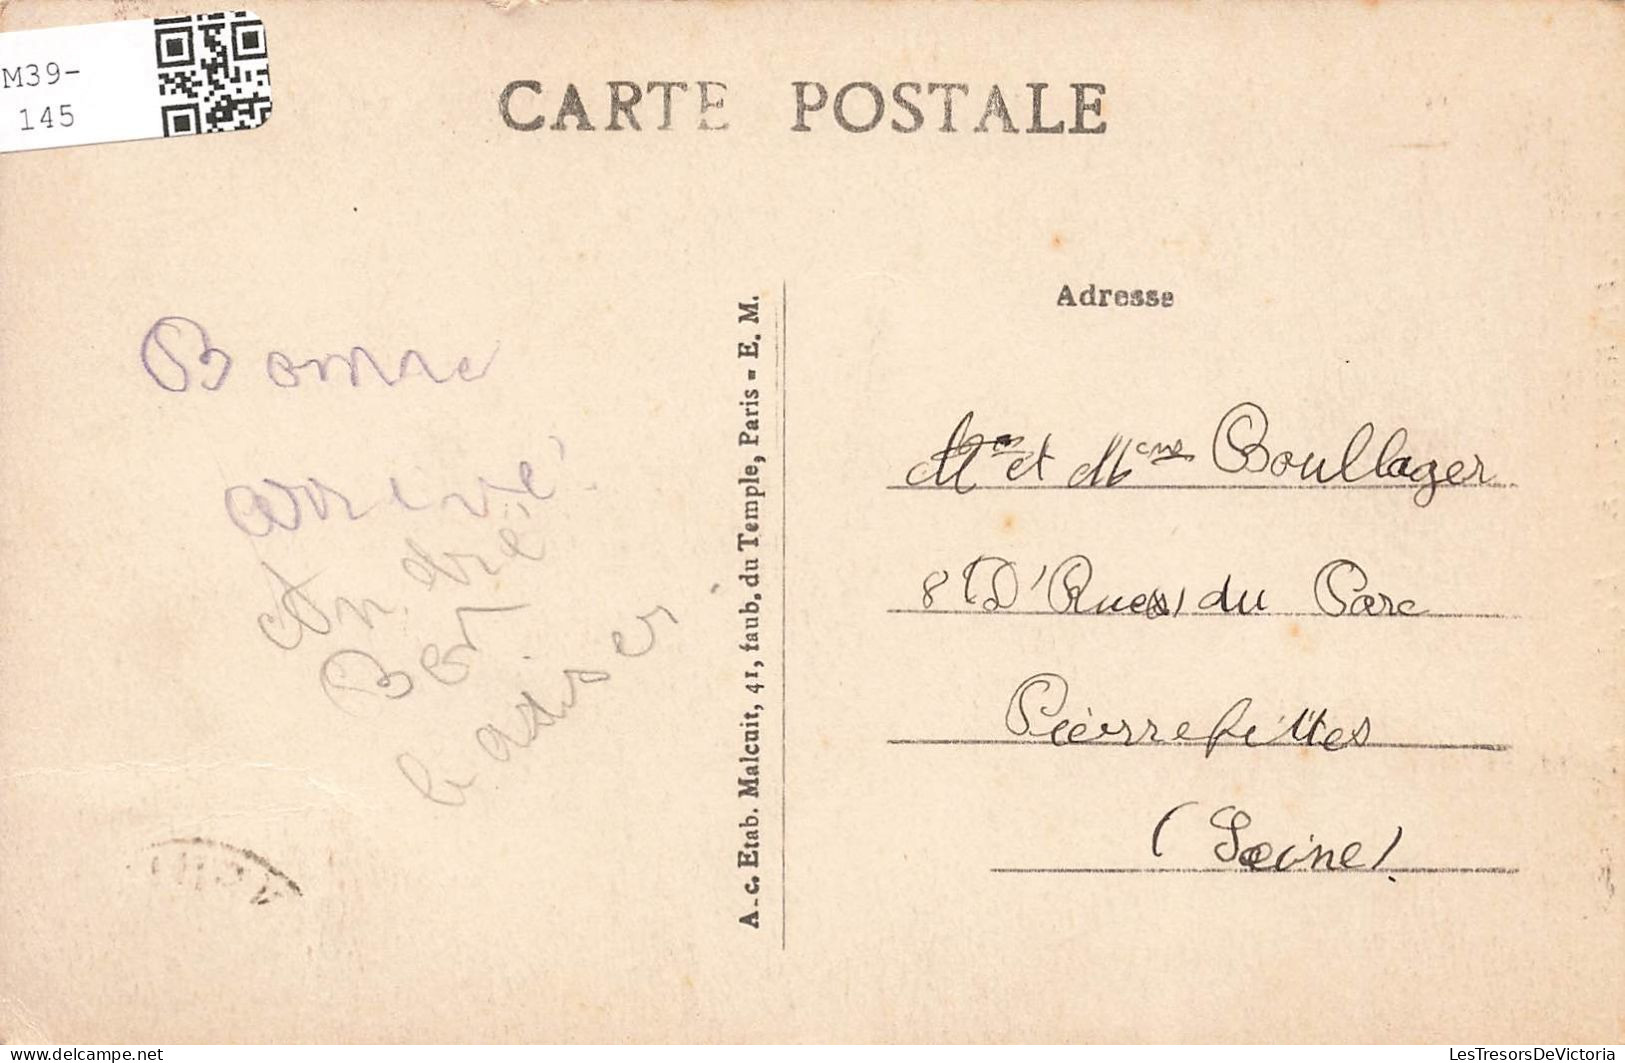 M39-
145
CARTE POSTALE
Adresse
Bonne
arrivé
André
Bon
baiser
A.-c. Etab. Malcuit, 41, faub. du Temple, Paris - E. M.
Mr et Mme Boullager
8 D' Rues du Parc
Pierrefittes
(Seine).
delcampe.net
LesTresorsDeVictoria